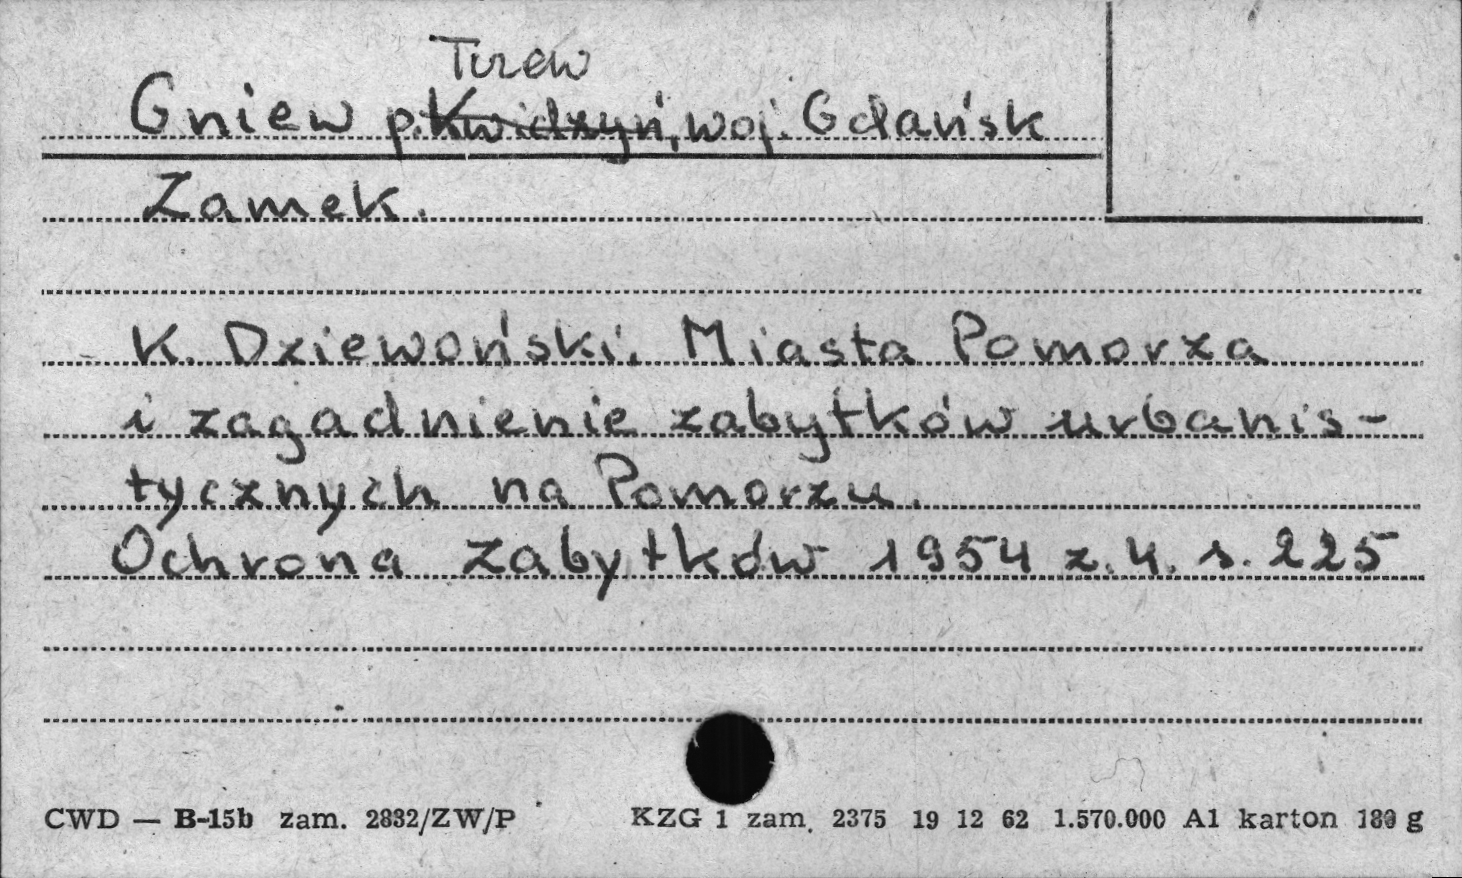 Tczew
Gniew p. Kwidzyń, woj. Gdańsk
Zamek.
K. Dziewoński. Miasta Pomorza
i zagadnienie zabytków urbanis-
tycznych na Pomorzu.
Ochrona zabytków 1954 z. 4. s. 225
CWD — B-15b zam. 2832/ZW/P KZG 1 zam. 2375 19 12 62 1.570.000 A1 karton 180 g